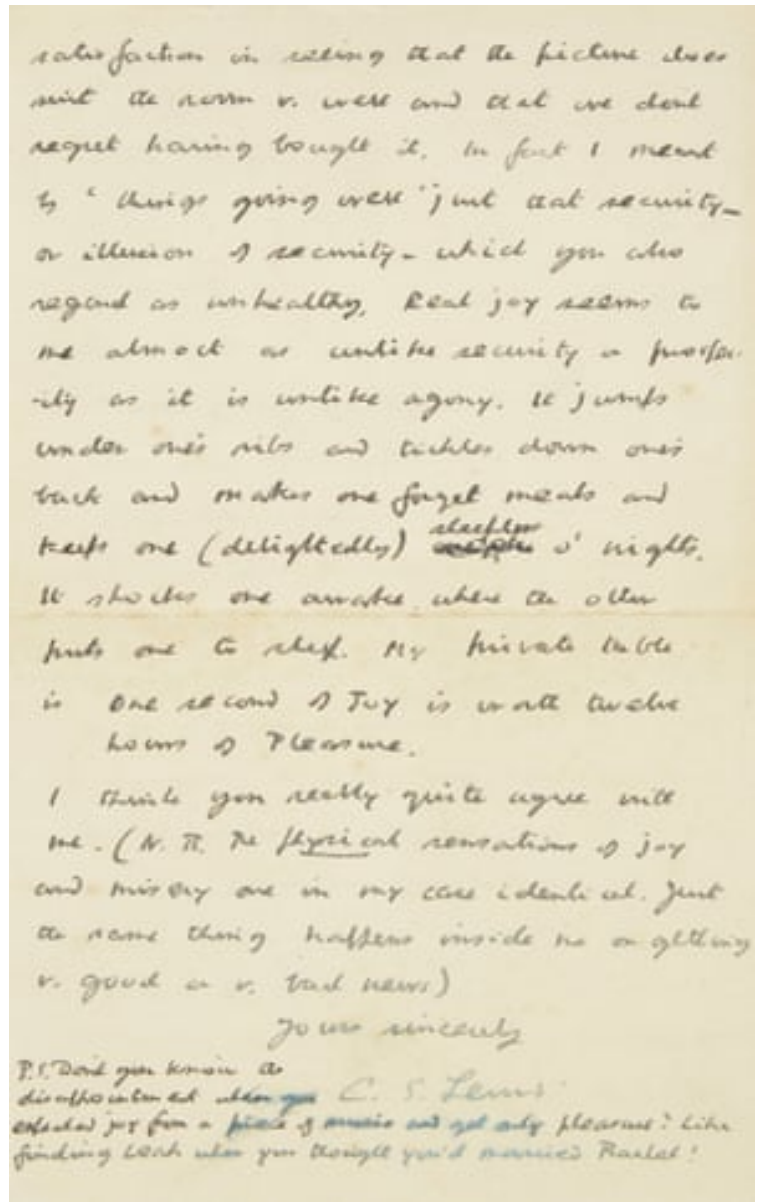 satisfaction in seeing that the picture does
suit the room v. well and that we dont
regret having bought it. In fact I meant
by ‘things going well’ just that security–
or illusion of security– which you also
regard as unhealthy. Real joy seems to
me almost as unlike security or prosper-
-ity as it is unlike agony. It jumps
under one's ribs and tickles down one's
back and makes one forget meals and
keeps one (delightedly) sleepless o' nights.
It shocks one awake when the other
puts one to sleep. My private table
is one second of Joy is worth twelve
hours of Pleasure.
I think you really quite agree with
me. (N.B. The physical sensations of joy
and misery are in my case identical. Just
the same thing happens inside me on getting
v. good or v. bad news)
Yours sincerely
C. S. Lewis
P.S. Don't you know the
disappointment when you
expected joy from a piece of music and get only pleasure? Like
finding Leah when you thought you'd married Rachel!